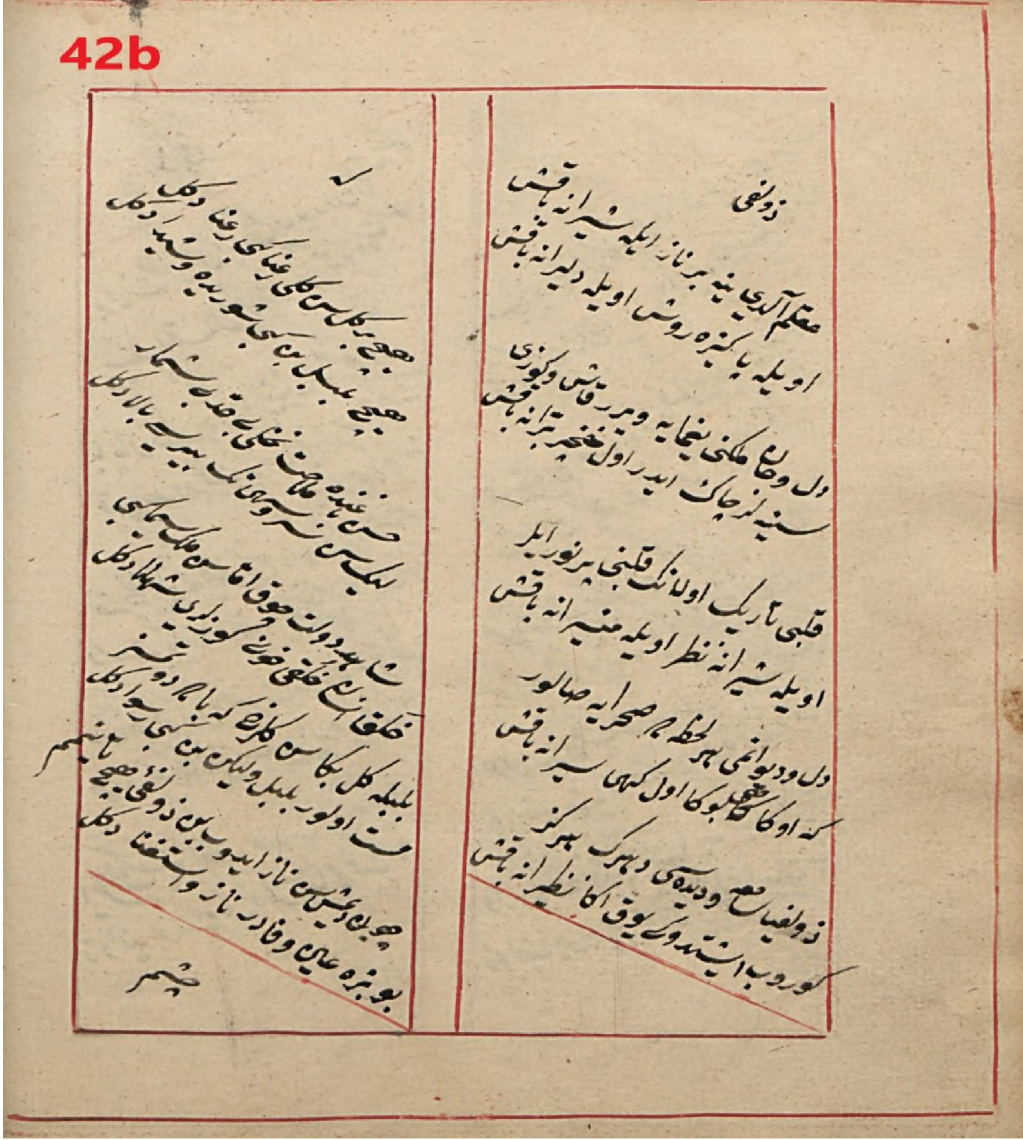 42b
ذولفى
عقلم آلدى ينه بر ناز ايله شيرانه باقش
اويله پاكيزه روش اويله دليرانه باقش
دل و جان ملكنى يغمايه ويرر قاش و كوزى
سينه لر چاك ايدر اول خنجر بترانه باقش
قلبى تاريك اولانك قلبنى پر نور ايلر
اويله شيرانه نظر اويله منيرانه باقش
دل و ديوانه‌ى هر لحظه صحرايه صالور
كه اوكا كاهى بوكا اول كهى سيرانه باقش
ذولفيا سامع و ديده‌سى دهرك هركز
كوروب ايشتدوكى يوق اكا نظيرانه باقش
له
هيچ بر كل سن كلى رعنا كبى رعنا دكل
هيچ بلبل بن كبى شوريده و شيدا دكل
حسن باغنده ملاحت نخلى بى حد بى شمار
ليك سن سرو سهى‌نك بيرى بالا دكل
شاهد دولت چوق اما سن ملك سيما كبى
خلق انسان خلقى خوب كوزلرى شهلا دكل
بلبله كل بكا سن كلرخ كه يار دوشمز
مست اولور بلبل وليكن بن كبى رسوا دكل
چون دیمش‌سن ناز ايدوب بن ذولفى هيچ يا نيم
بو بزه عين وفادر ناز و استغنا دكل
چشم